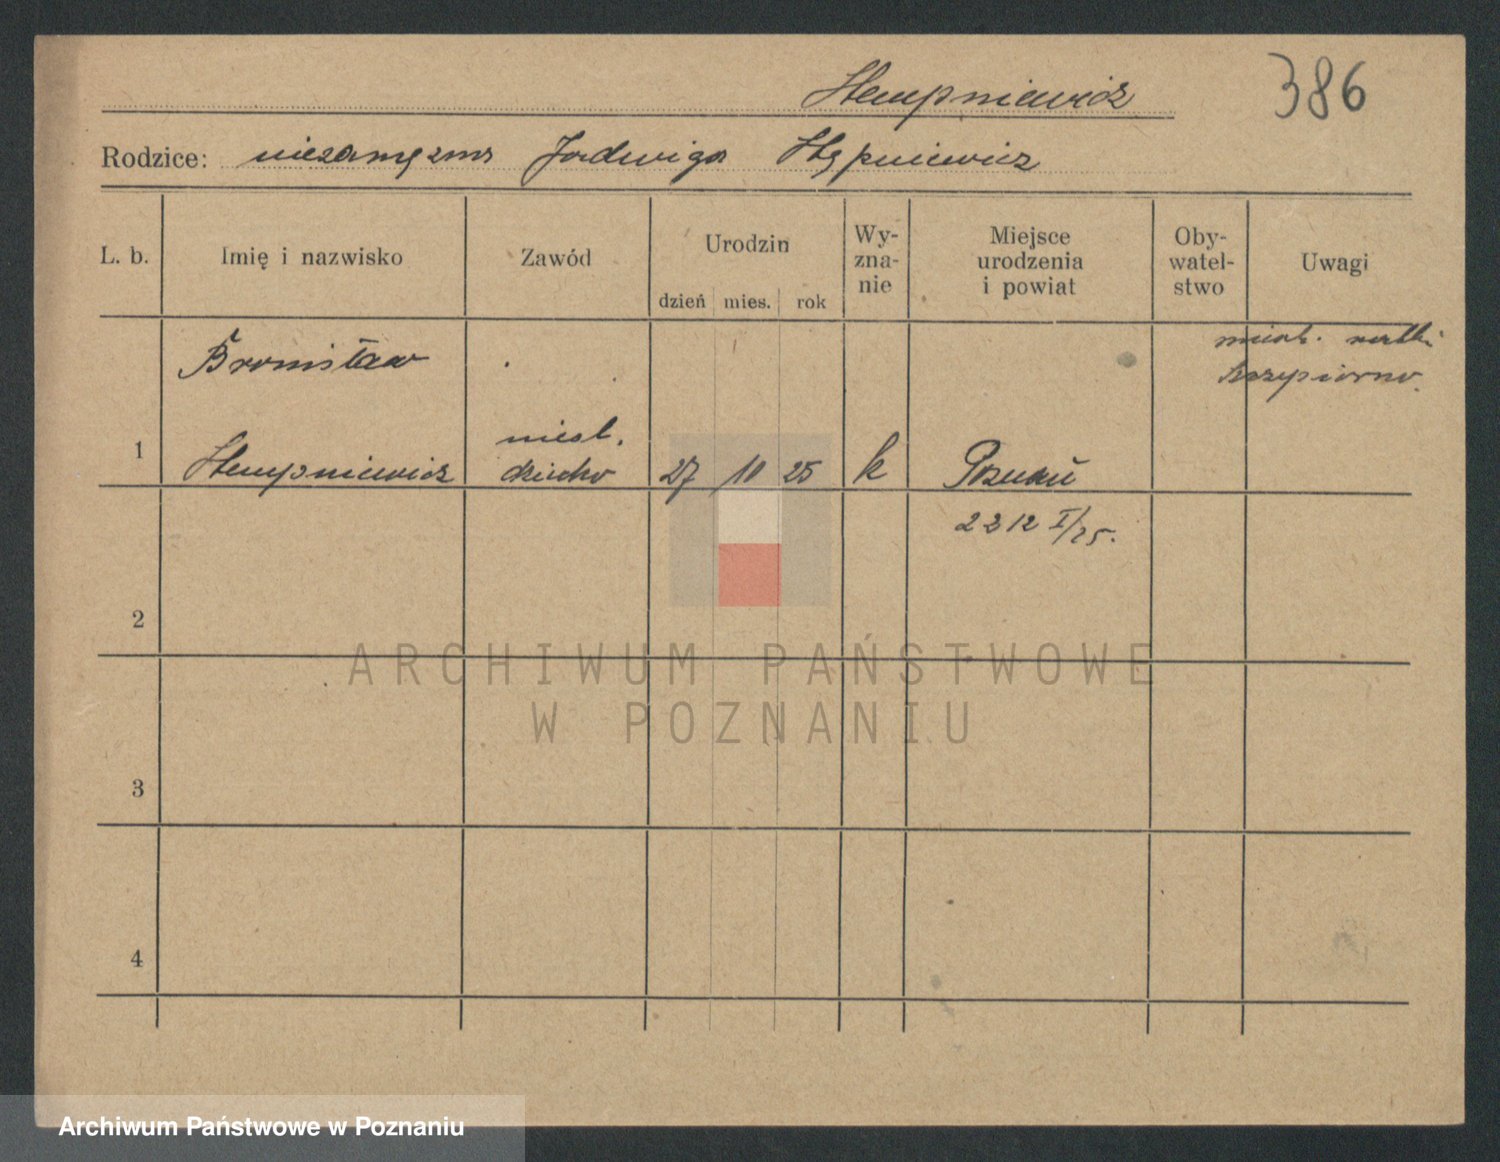 Stempniewicz
386
Rodzice: niezamężna Jadwiga Stępniewicz
L. b.
Imię i nazwisko
Zawód
Urodzin
dzień mies. rok
Wy-
zna-
nie
Miejsce
urodzenia
i powiat
Oby-
watel-
stwo
Uwagi
1
Bronisław
Stempniewicz
nieśl.
dziecko
27 10 25
k
Poznań
2212 I/25.
matki
Szczypiorno.
2
3
4
ARCHIWUM PAŃSTWOWE
W POZNANIU
Archiwum Państwowe w Poznaniu